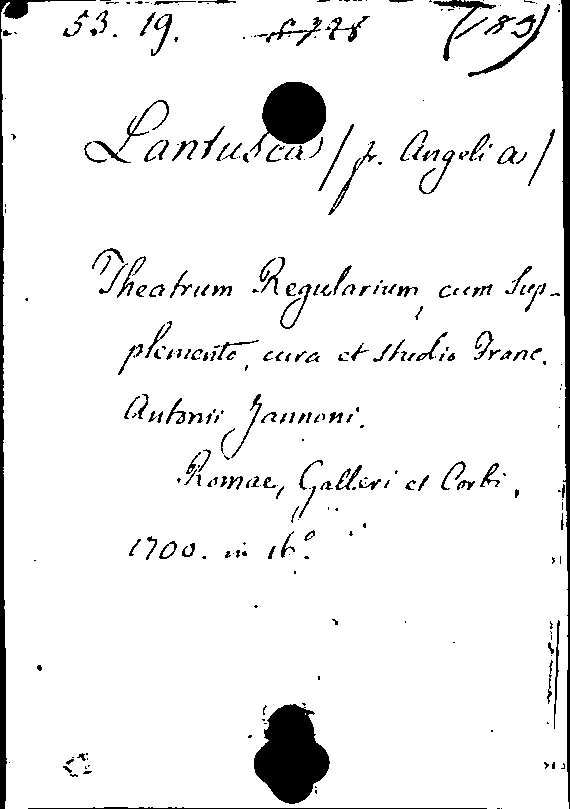 53. 19. (183)
Lantusca / fr. Angeli a /
Theatrum Regularium, cum Sup-
plemento, cura et studio Franc.
Antonii Jannoni.
Romae, Galleri et Corbi,
1700. in 16°.